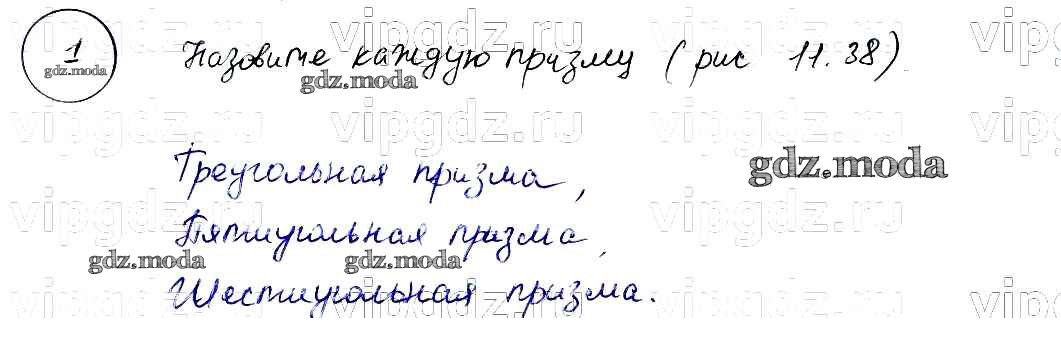 1 Назовите каждую призму (рис 11.38).
Треугольная призма,
Пятиугольная призма,
Шестиугольная призма.
gdz.moda
gdz.moda
gdz.moda
gdz.moda
gdz.moda
vipgdz.ru vipgdz.ru vipgdz.ru
vipgdz.ru vipgdz.ru vipgdz.ru
vipgdz.ru vipgdz.ru vipgdz.ru
vipgdz.ru vipgdz.ru vipgdz.ru